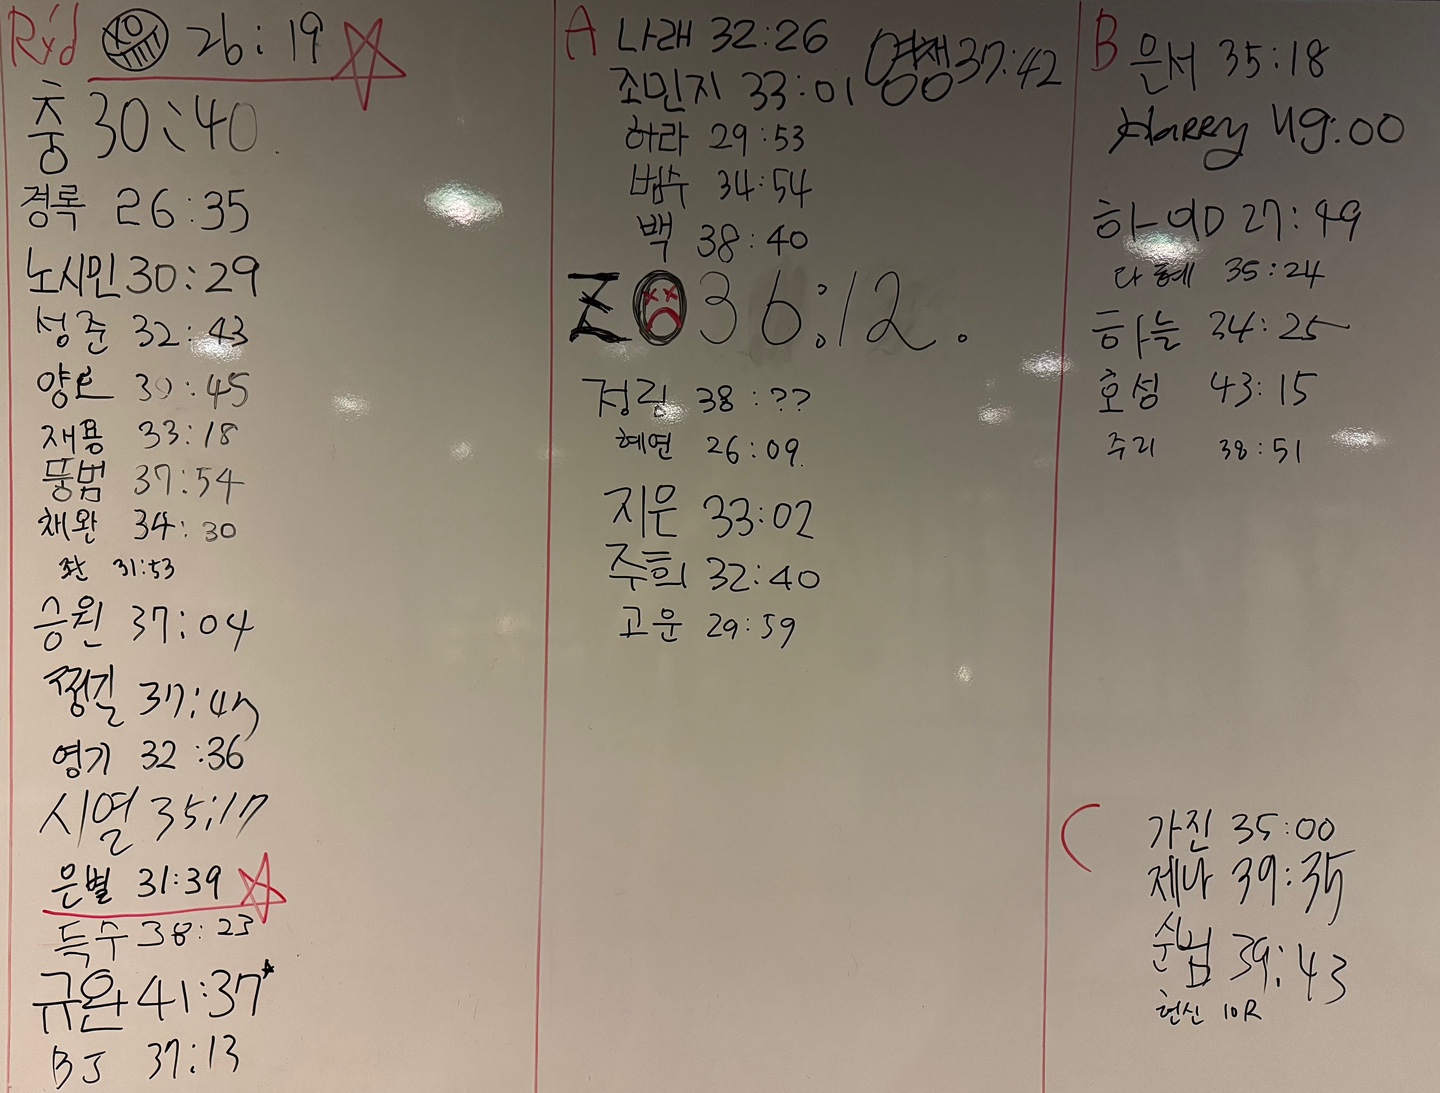 Rx'd 26:19
충 30:40
경록 26:35
노시민 30:29
성준 32:43
30:45
재용 33:18
뚱범 37:54
채완 34:30
31:53
승원 37:04
쩡길 37:47
영기 32:36
시열 35:17
은별 31:39
득수 38:23
규완 41:37
BJ 37:13
A 나래 32:26
영쟁 37:42
조민지 33:01
하라 29:53
범수 34:54
백 38:40
36:12.
정림 38:??
혜연 26:09
지은 33:02
주희 32:40
고운 29:59
B 은서 35:18
Harry 49:00
27:49
다혜 35:24
하늘 34:25
호성 43:15
주리 38:51
C 가진 35:00
제나 39:35
순범 39:43
현신 10R